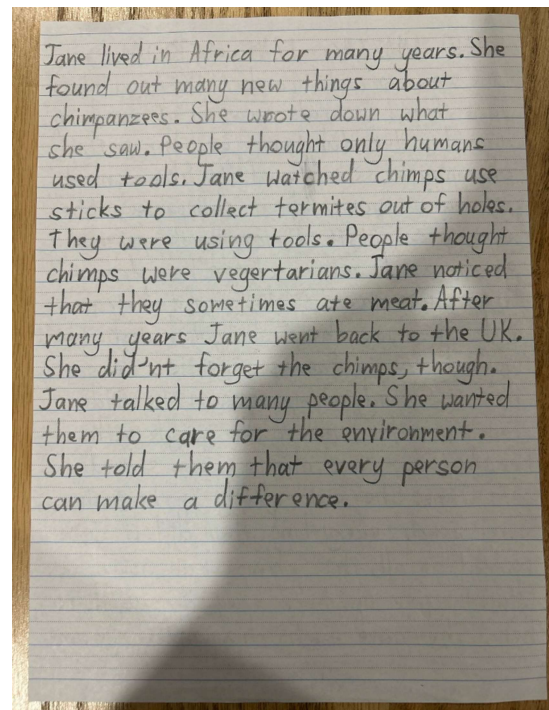 Jane lived in Africa for many years. She
found out many new things about
chimpanzees. She wrote down what
she saw. People thought only humans
used tools. Jane watched chimps use
sticks to collect termites out of holes.
They were using tools. People thought
chimps were vegertarians. Jane noticed
that they sometimes ate meat. After
many years Jane went back to the UK.
She did'nt forget the chimps, though.
Jane talked to many people. She wanted
them to care for the environment.
She told them that every person
can make a difference.